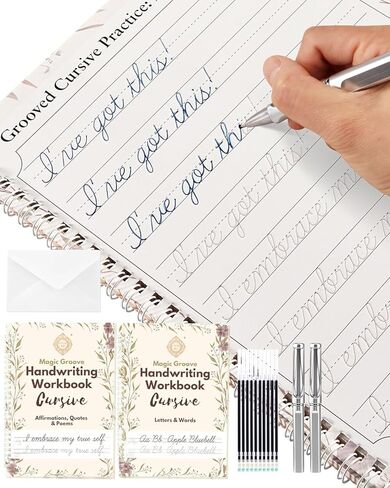 Grooved Cursive Practice:
I've got this!
I've got this!
I've got th
I've got this!
I embrace m
I embrace
Magic Groove
Handwriting
Workbook
Cursive
Affirmations, Quotes
& Poems
I embrace my true self.
Magic Groove
Handwriting
Workbook
Cursive
Letters & Words
Aa Bb Apple Bluebell